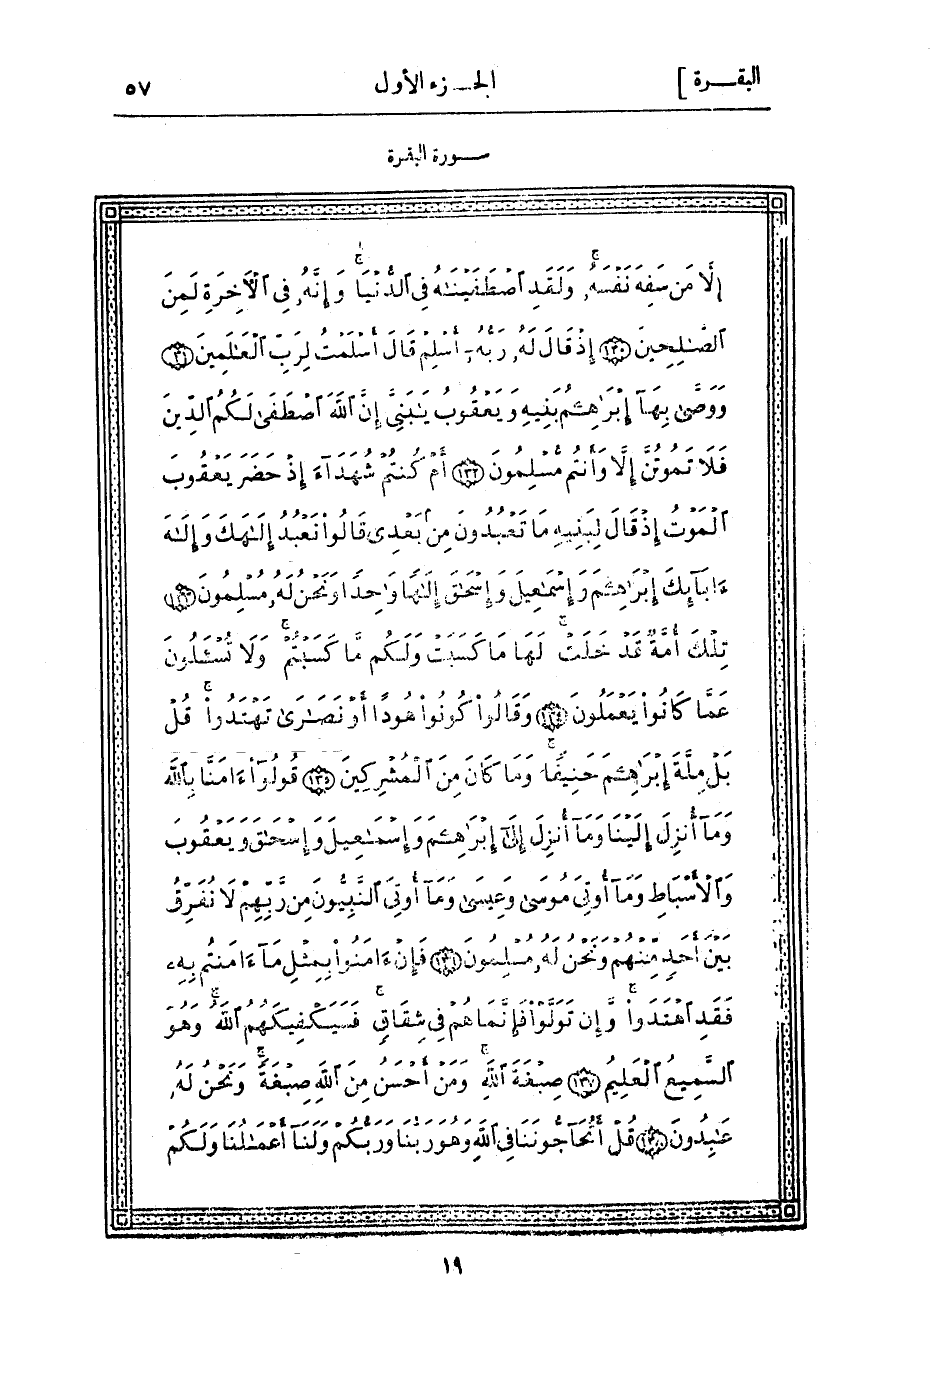 البقـــرة ]
الجـــزء الأول
٥٧
ســـورة البقرة
إِلَّا مَن سَفِهَ نَفْسَهُۥۚ وَلَقَدِ ٱصْطَفَيْنَٰهُ فِى ٱلدُّنْيَاۖ وَإِنَّهُۥ فِى ٱلْأَخِرَةِ لَمِنَ
ٱلصَّٰلِحِينَ ١٣٠ إِذْ قَالَ لَهُۥ رَبُّهُۥٓ أَسْلِمْ قَالَ أَسْلَمْتُ لِرَبِّ ٱلْعَٰلَمِينَ ١٣١
وَوَصَّىٰ بِهَآ إِبْرَٰهِـۧمُ بَنِيهِ وَيَعْقُوبُ يَٰبَنِىَّ إِنَّ ٱللَّهَ ٱصْطَفَىٰ لَكُمُ ٱلدِّينَ
فَلَا تَمُوتُنَّ إِلَّا وَأَنتُم مُّسْلِمُونَ ١٣٢ أَمْ كُنتُمْ شُهَدَآءَ إِذْ حَضَرَ يَعْقُوبَ
ٱلْمَوْتُ إِذْ قَالَ لِبَنِيهِ مَا تَعْبُدُونَ مِنۢ بَعْدِى قَالُوا۟ نَعْبُدُ إِلَٰهَكَ وَإِلَٰهَ
ءَابَآئِكَ إِبْرَٰهِـۧمَ وَإِسْمَٰعِيلَ وَإِسْحَٰقَ إِلَٰهًا وَٰحِدًا وَنَحْنُ لَهُۥ مُسْلِمُونَ ١٣٣
تِلْكَ أُمَّةٌ قَدْ خَلَتْۖ لَهَا مَا كَسَبَتْ وَلَكُم مَّا كَسَبْتُمْۖ وَلَا تُسْـَٔلُونَ
عَمَّا كَانُوا۟ يَعْمَلُونَ ١٣٤ وَقَالُوا۟ كُونُوا۟ هُودًا أَوْ نَصَٰرَىٰ تَهْتَدُوا۟ۚ قُلْ
بَلْ مِلَّةَ إِبْرَٰهِـۧمَ حَنِيفًاۖ وَمَا كَانَ مِنَ ٱلْمُشْرِكِينَ ١٣٥ قُولُوٓا۟ ءَامَنَّا بِٱللَّهِ
وَمَآ أُنزِلَ إِلَيْنَا وَمَآ أُنزِلَ إِلَىٰٓ إِبْرَٰهِـۧمَ وَإِسْمَٰعِيلَ وَإِسْحَٰقَ وَيَعْقُوبَ
وَٱلْأَسْبَاطِ وَمَآ أُوتِىَ مُوسَىٰ وَعِيسَىٰ وَمَآ أُوتِىَ ٱلنَّبِيُّونَ مِن رَّبِّهِمْ لَا نُفَرِّقُ
بَيْنَ أَحَدٍ مِّنْهُمْ وَنَحْنُ لَهُۥ مُسْلِمُونَ ١٣٦ فَإِنْ ءَامَنُوا۟ بِمِثْلِ مَآ ءَامَنتُم بِهِۦ
فَقَدِ ٱهْتَدَوا۟ۖ وَّإِن تَوَلَّوْا۟ فَإِنَّمَا هُمْ فِى شِقَاقٍۖ فَسَيَكْفِيكَهُمُ ٱللَّهُۚ وَهُوَ
ٱلسَّمِيعُ ٱلْعَلِيمُ ١٣٧ صِبْغَةَ ٱللَّهِۖ وَمَنْ أَحْسَنُ مِنَ ٱللَّهِ صِبْغَةًۖ وَنَحْنُ لَهُۥ
عَٰبِدُونَ ١٣٨ قُلْ أَتُحَآجُّونَنَا فِى ٱللَّهِ وَهُوَ رَبُّنَا وَرَبُّكُمْ وَلَنَآ أَعْمَٰلُنَا وَلَكُمْ
١٩